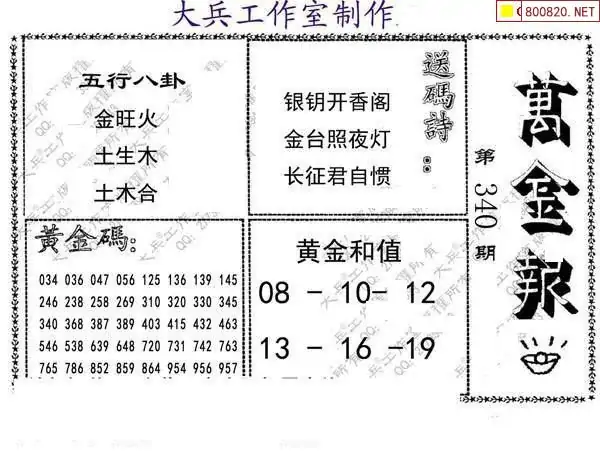 大兵工作室制作
800820.NET
五行八卦
金旺火
土生木
土木合
送碼詩:
银钥开香阁
金台照夜灯
长征君自惯
萬金報
第340期
黃金碼:
034 036 047 056 125 136 139 145
246 238 258 269 310 320 330 346
340 368 387 389 403 415 432 463
546 538 639 648 720 731 742 763
765 786 852 859 864 954 956 957
黄金和值
08 - 10- 12
13 - 16 -19